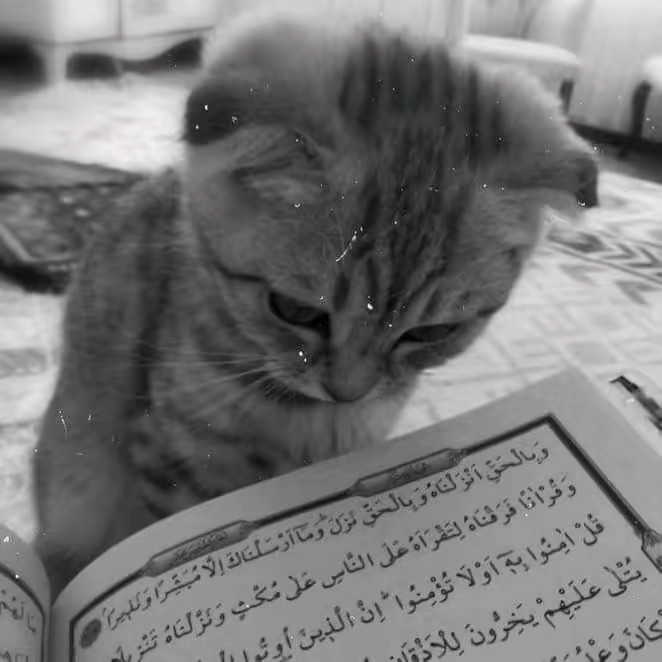 وَبِالْحَقِّ اَنْزَلْنَاهُ وَبِالْحَقِّ نَزَلَ وَمَٓا اَرْسَلْنَاكَ اِلَّا مُبَشِّرًا وَنَذِيرًا
وَقُرْاٰنًا فَرَقْنَاهُ لِتَقْرَاَهُ عَلَى النَّاسِ عَلٰى مُكْثٍ وَنَزَّلْنَاهُ تَنْزِيلًا
قُلْ اٰمِنُوا بِهٖٓ اَوْ لَا تُؤْمِنُوا اِنَّ الَّذِينَ اُوتُوا
يُتْلٰى عَلَيْهِمْ يَخِرُّونَ لِلْاَذْقَانِ